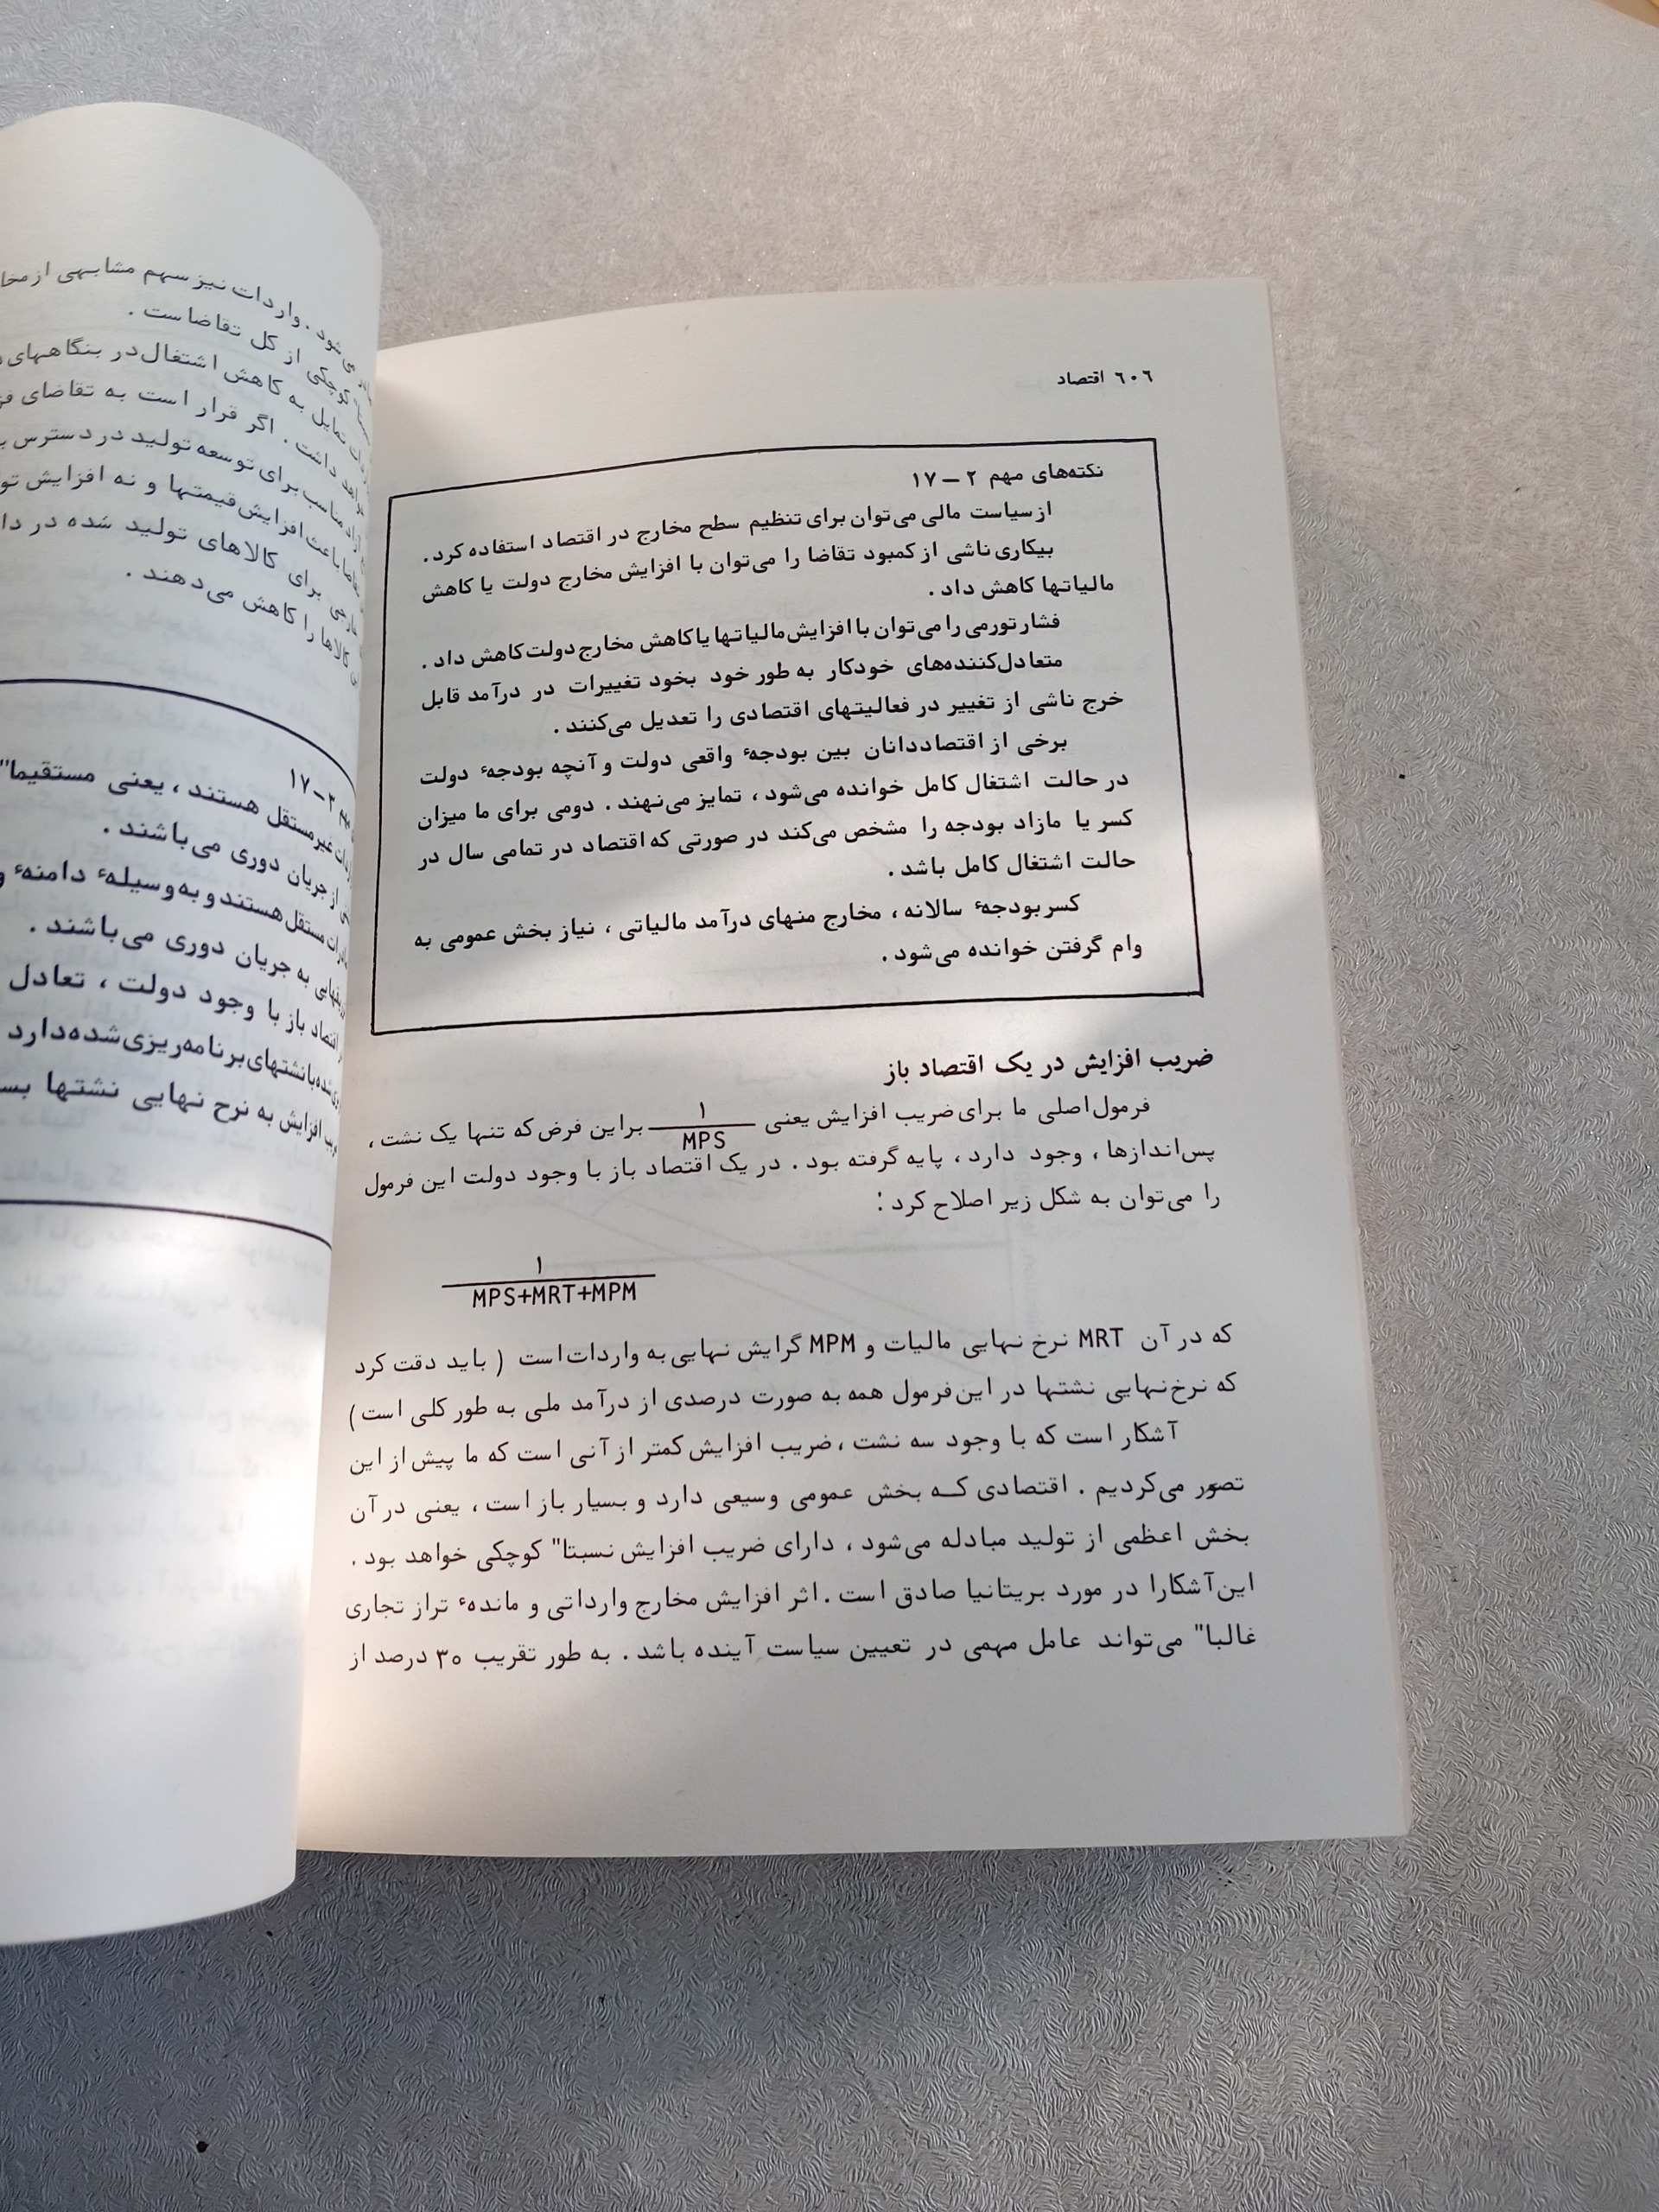 ٦٠٦ اقتصاد
نکته‌های مهم ۲ – ۱۷
از سیاست مالی می‌توان برای تنظیم سطح مخارج در اقتصاد استفاده کرد.
بیکاری ناشی از کمبود تقاضا را می‌توان با افزایش مخارج دولت یا کاهش
مالیاتها کاهش داد.
فشار تورمی را می‌توان با افزایش مالیاتها یا کاهش مخارج دولت کاهش داد.
متعادل‌کننده‌های خودکار به طور خود بخود تغییرات در درآمد قابل
خرج ناشی از تغییر در فعالیتهای اقتصادی را تعدیل می‌کنند.
برخی از اقتصاددانان بین بودجهٔ واقعی دولت و آنچه بودجهٔ دولت
در حالت اشتغال کامل خوانده می‌شود، تمایز می‌نهند. دومی برای ما میزان
کسر یا مازاد بودجه را مشخص می‌کند در صورتی که اقتصاد در تمامی سال در
حالت اشتغال کامل باشد.
کسر بودجهٔ سالانه، مخارج منهای درآمد مالیاتی، نیاز بخش عمومی به
وام گرفتن خوانده می‌شود.
ضریب افزایش در یک اقتصاد باز
فرمول اصلی ما برای ضریب افزایش یعنی ۱/MPS براین فرض که تنها یک نشت،
پس‌اندازها، وجود دارد، پایه گرفته بود. در یک اقتصاد باز با وجود دولت این فرمول
را می‌توان به شکل زیر اصلاح کرد:
۱
MPS+MRT+MPM
که در آن MRT نرخ نهایی مالیات و MPM گرایش نهایی به واردات است (باید دقت کرد
که نرخ نهایی نشتها در این فرمول همه به صورت درصدی از درآمد ملی به طور کلی است)
آشکار است که با وجود سه نشت، ضریب افزایش کمتر از آنی است که ما پیش از این
تصور می‌کردیم. اقتصادی که بخش عمومی وسیعی دارد و بسیار باز است، یعنی در آن
بخش اعظمی از تولید مبادله می‌شود، دارای ضریب افزایش نسبتا" کوچکی خواهد بود.
این آشکارا در مورد بریتانیا صادق است. اثر افزایش مخارج وارداتی و ماندهٔ تراز تجاری
غالبا" می‌تواند عامل مهمی در تعیین سیاست آینده باشد. به طور تقریب ۳۰ درصد از
می‌شود. واردات نیز سهم مشابهی از
کوچکی از کل تقاضاست.
تمایل به کاهش اشتغال در بنگاههای
داشت. اگر قرار است به تقاضای
مناسب برای توسعه تولید در دسترس
باعث افزایش قیمتها و نه افزایش
برای کالاهای تولید شده در
کالاها را کاهش می‌دهند.
۳–۱۷
غیرمستقل هستند، یعنی مستقیما"
از جریان دوری می‌باشند.
مستقل هستند و به وسیلهٔ دامنهٔ
به جریان دوری می‌باشند.
باز با وجود دولت، تعادل
با نشتهای برنامه‌ریزی شده دارد
افزایش به نرخ نهایی نشتها